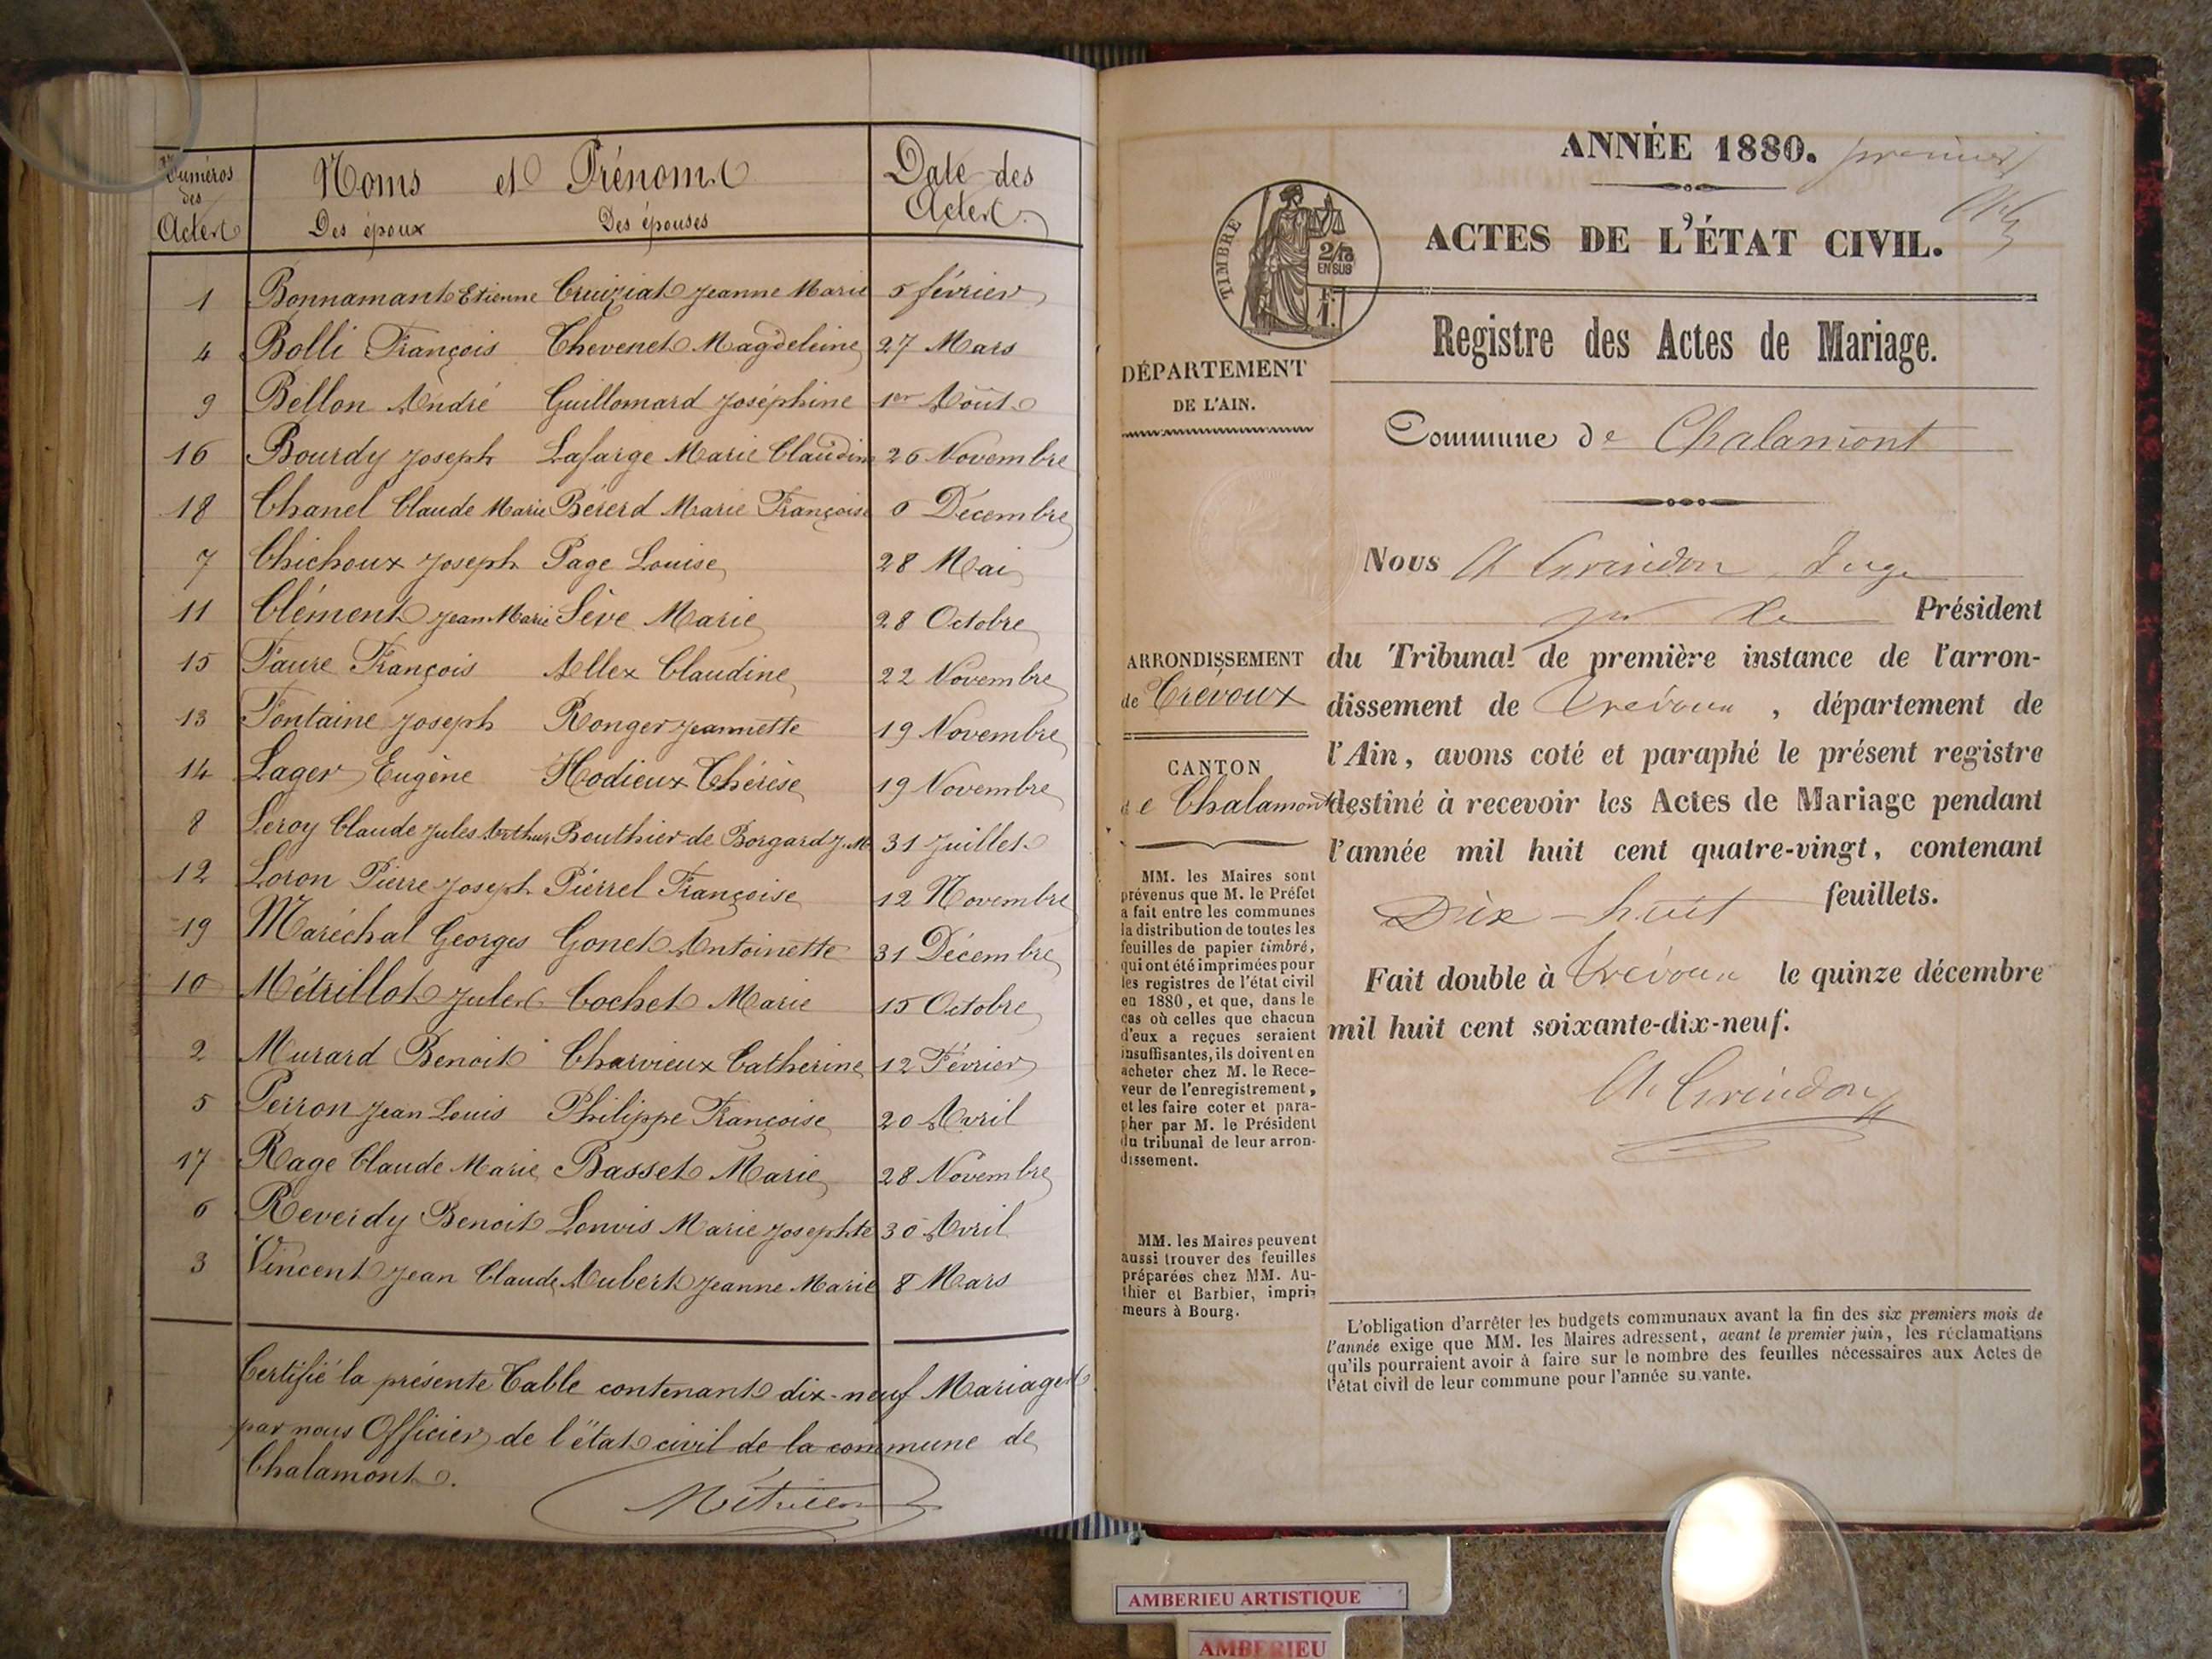 Numéros des Actes
Noms et Prénoms
Des époux Des épouses
Date des Actes
1 Bonnamant Etienne Cruiziat Jeanne Marie 5 février
4 Bolli François Thevenet Magdeleine 27 Mars
9 Bellon André Guillomard Joséphine 1er Août
16 Bourdy Joseph Lafarge Marie Claudine 26 Novembre
18 Chanel Claude Marie Bérérd Marie Françoise 6 Décembre
7 Chichoux Joseph Page Louise 28 Mai
11 Clément Jean Marie Sève Marie 28 Octobre
15 Faure François Allex Claudine 22 Novembre
13 Fontaine Joseph Ronger Jeannette 19 Novembre
14 Lager Eugène Hodieux Thérèse 19 Novembre
8 Leroy Claude Jules Arthur Bouthier de Borgard J. M. 31 Juillet
12 Loron Pierre Joseph Pierrel Françoise 12 Novembre
19 Maréchal Georges Gonet Antoinette 31 Décembre
10 Métrillot Jules Cochet Marie 15 Octobre
2 Murard Benoit Charvieux Catherine 12 Février
5 Perron Jean Louis Philippe Françoise 20 Avril
17 Rage Claude Marie Basset Marie 28 Novembre
6 Reverdy Benoit Lonvis Marie Josephte 30 Avril
3 Vincent Jean Claude Aubert Jeanne Marie 8 Mars
Certifié la présente Table contenant dix-neuf Mariages
par nous Officier de l'état civil de la commune de
Chalamont.
ANNÉE 1880. premier
ACTES DE L'ÉTAT CIVIL.
TIMBRE
2/10
EN SUS
1 f.
Registre des Actes de Mariage.
DÉPARTEMENT
DE L'AIN.
Commune de Chalamont
Nous Juge
Président
du Tribunal de première instance de l'arron-
dissement de Trévoux, département de
l'Ain, avons coté et paraphé le présent registre
destiné à recevoir les Actes de Mariage pendant
l'année mil huit cent quatre-vingt, contenant
Dix-huit feuillets.
Fait double à Trévoux le quinze décembre
mil huit cent soixante-dix-neuf.
ARRONDISSEMENT
de Trévoux
CANTON
de Chalamont
MM. les Maires sont
prévenus que M. le Préfet
a fait entre les communes
la distribution de toutes les
feuilles de papier timbré,
qui ont été imprimées pour
les registres de l'état civil
en 1880, et que, dans le
cas où celles que chacun
d'eux a reçues seraient
insuffisantes, ils doivent en
acheter chez M. le Rece-
veur de l'enregistrement,
et les faire coter et para-
pher par M. le Président
du tribunal de leur arron-
dissement.
MM. les Maires peuvent
aussi trouver des feuilles
préparées chez MM. Au-
thier et Barbier, impri-
meurs à Bourg.
L'obligation d'arrêter les budgets communaux avant la fin des six premiers mois de
l'année exige que MM. les Maires adressent, avant le premier juin, les réclamations
qu'ils pourraient avoir à faire sur le nombre des feuilles nécessaires aux Actes de
l'état civil de leur commune pour l'année suivante.
AMBERIEU ARTISTIQUE
AMBERIEU